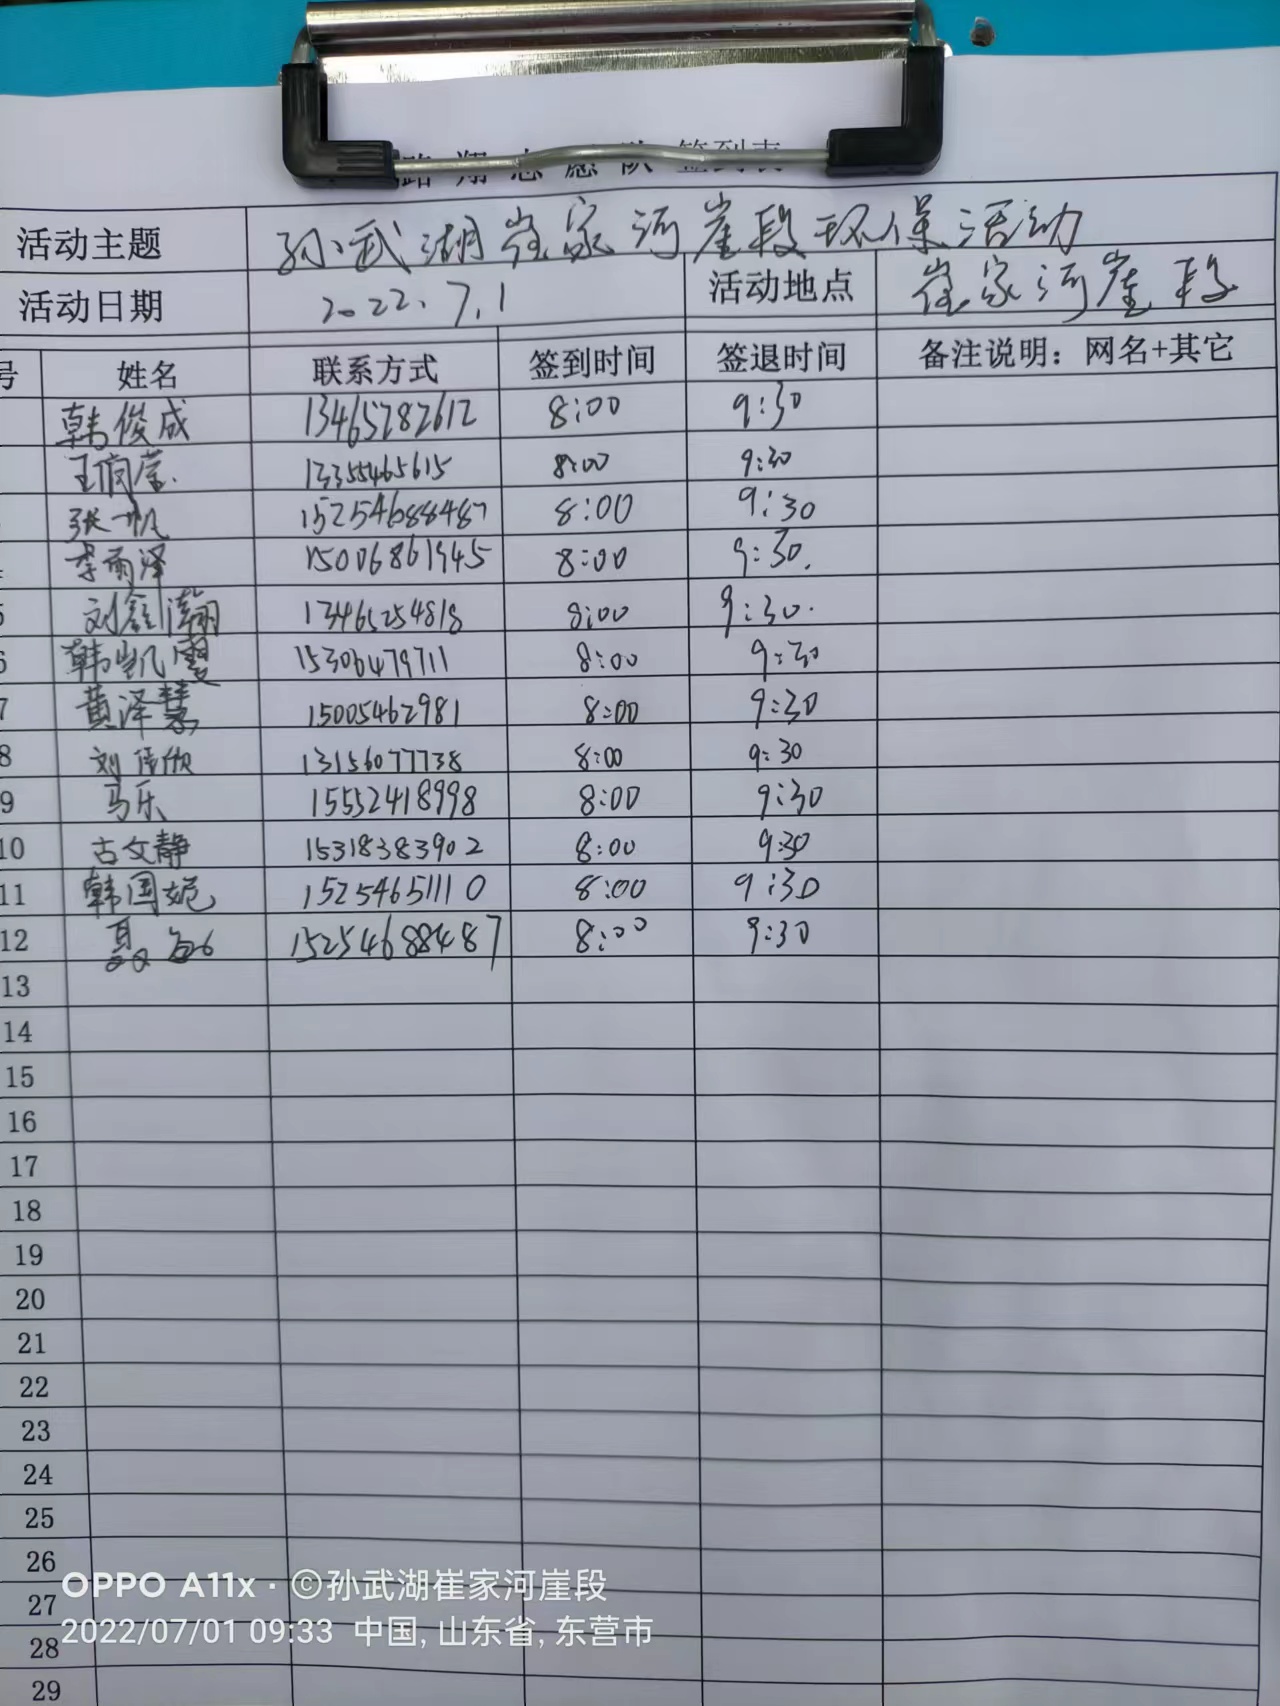 翔志愿队 签到表
活动主题 孙武湖崔家河崖段环保活动
活动日期 2022.7.1 活动地点 崔家河崖段
号 姓名 联系方式 签到时间 签退时间 备注说明：网名+其它
韩俊成 13465282612 8:00 9:30
王 莹 13355465615 8:00 9:30
张一帆 15254688487 8:00 9:30
李雨泽 15006861945 8:00 9:30.
5 刘鑫瀚 13465254818 8:00 9:30.
6 韩凯雯 15306479711 8:00 9:30
7 黄泽慧 15005462981 8:00 9:30
8 刘佳欣 13156077738 8:00 9:30
9 马乐 15552418998 8:00 9:30
10 古文静 15318383902 8:00 9:30
11 韩国妮 15254651110 8:00 9:30
12 聂 15254688487 8:00 9:30
13
14
15
16
17
18
19
20
21
22
23
24
25
26
27
28
29
OPPO A11x · ©孙武湖崔家河崖段
2022/07/01 09:33 中国, 山东省, 东营市